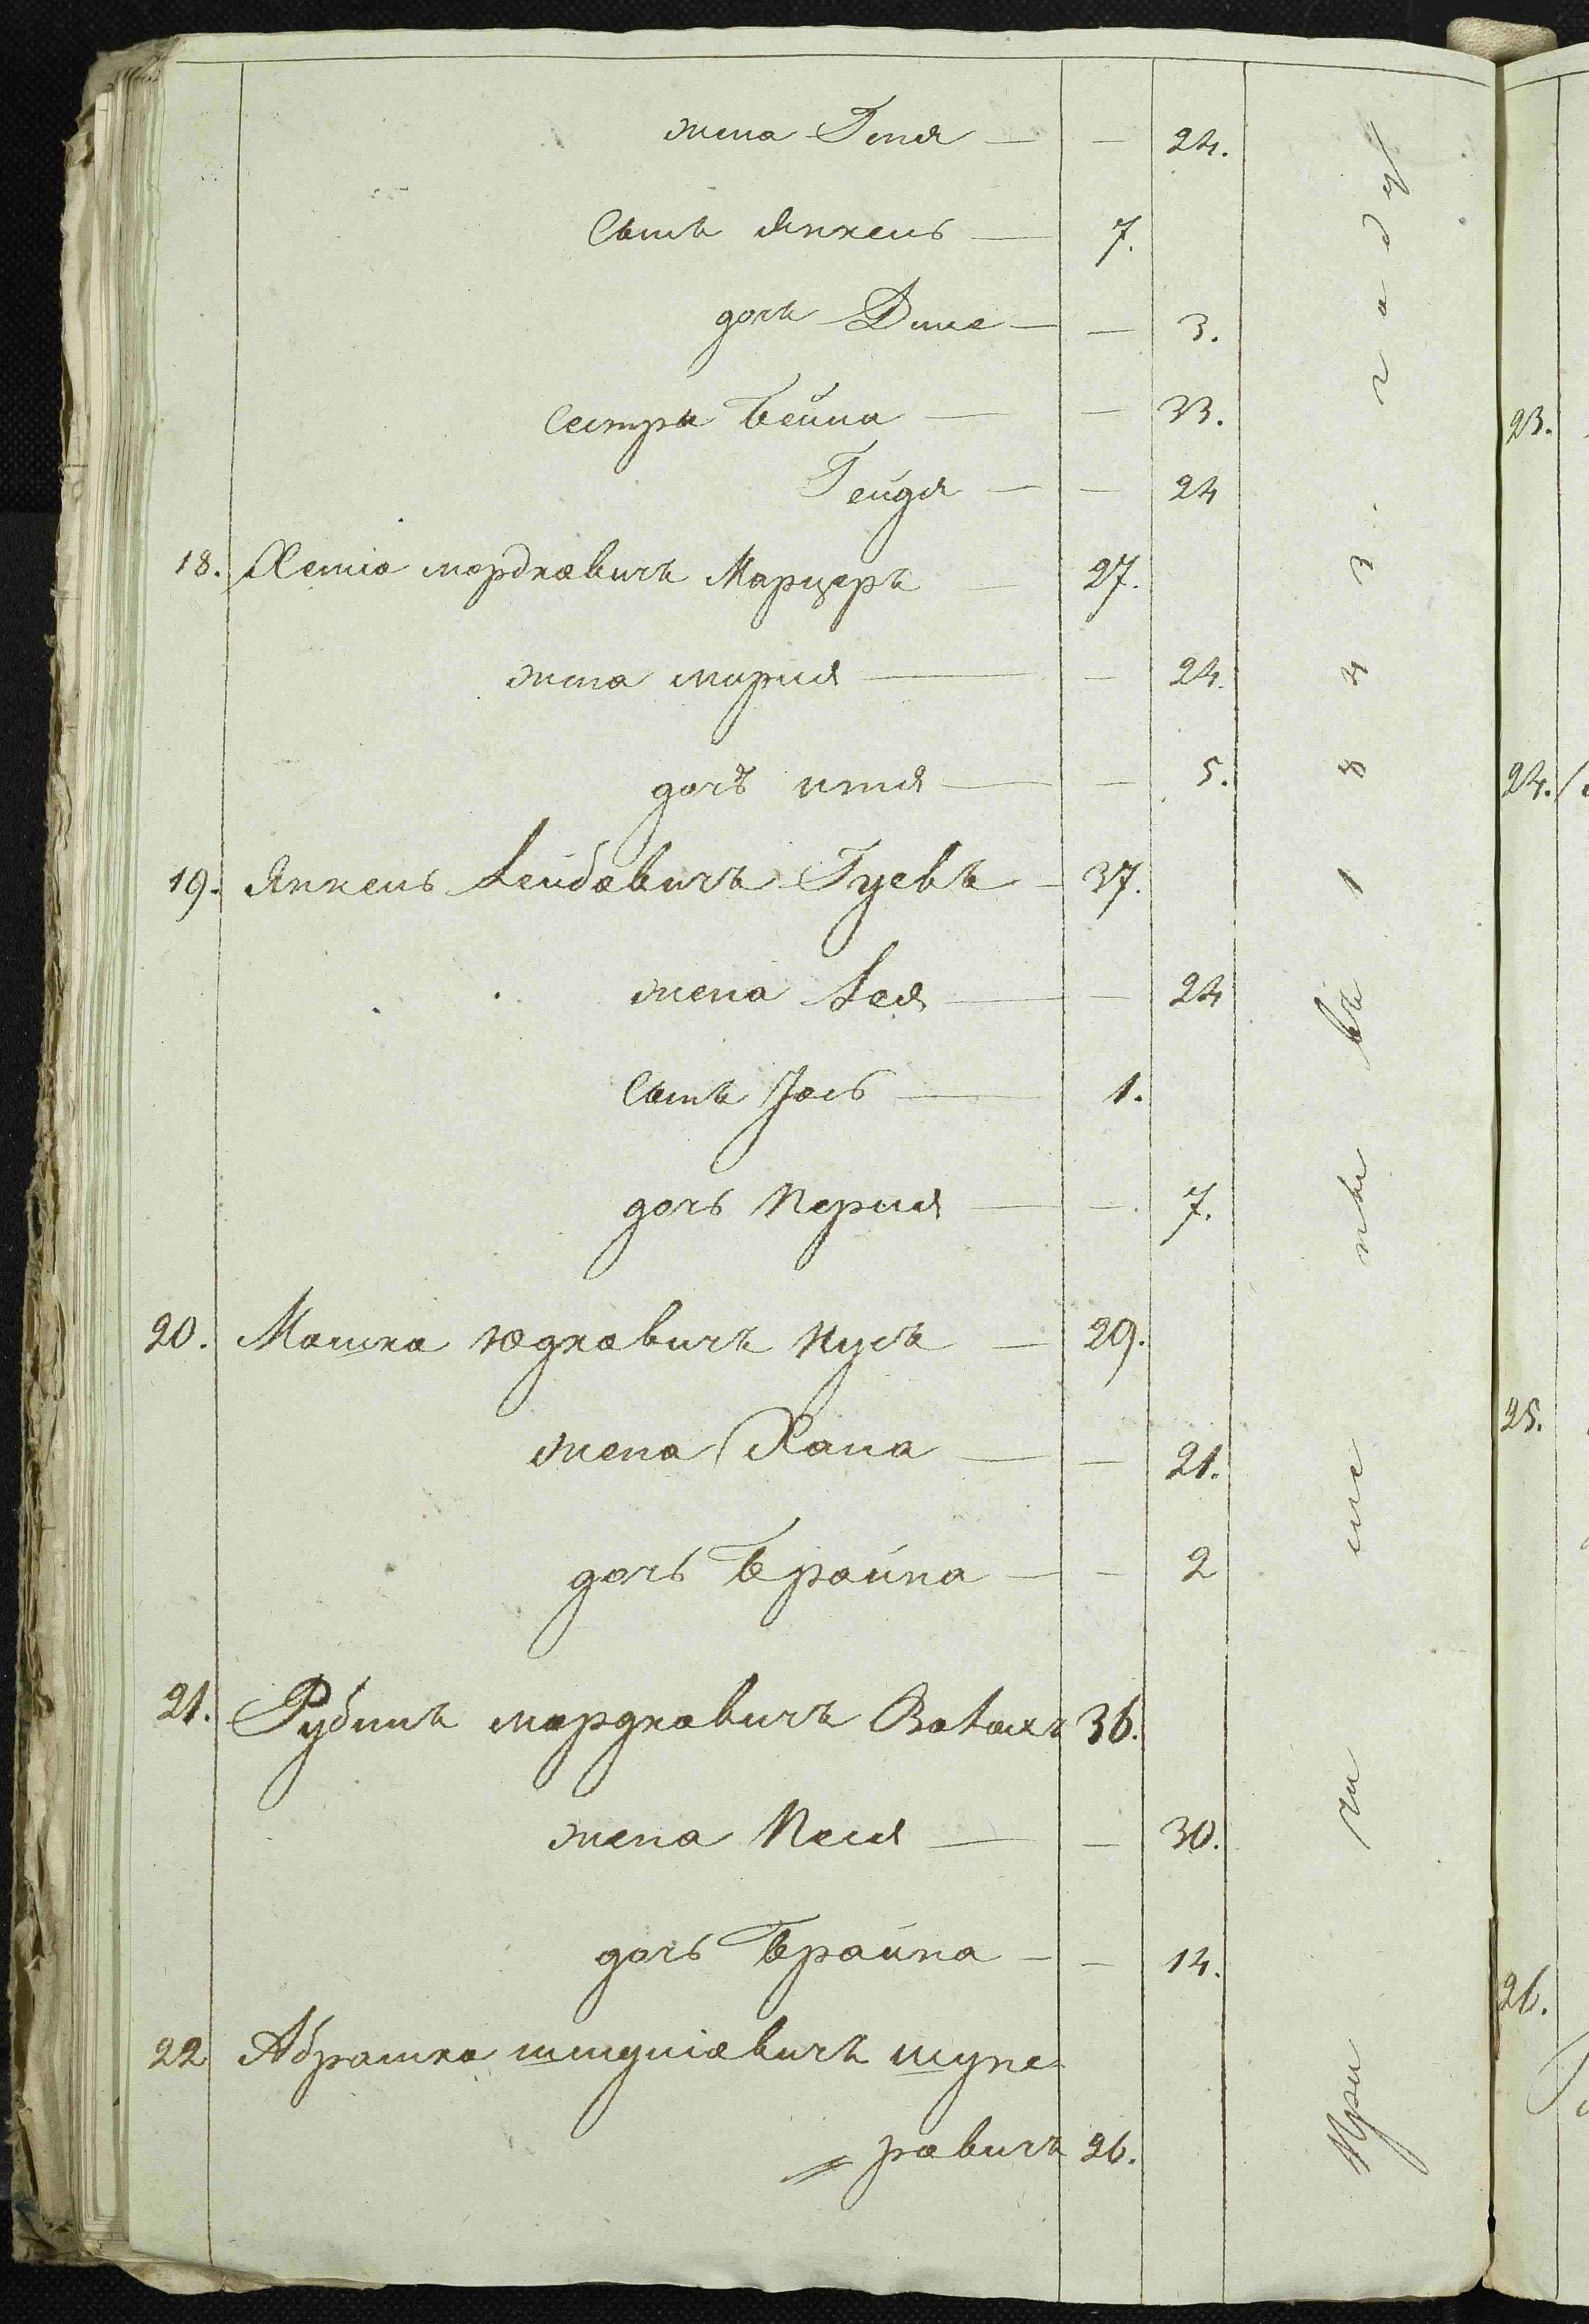 жена Геня — — 24.
Сынъ Янкель — 7.
дочь Дине — — 3.
Сестра Бейла — — 33.
Гейдя — — 24
18. Хемія мордковичъ Марцеръ — 27.
жена мирля — — 24.
дочь итля — — 5.
19. Янкель Лейбовичъ Гуевъ — 37.
жена Лея — — 24
Сынъ Іось — 1.
дочь Перля — — 7.
20. Мошка юдковичъ Кусъ — 29.
жена Хана — — 21.
дочь Брайна — — 2
21. Рубинъ мордковичъ Волахъ 36.
жена Песя — — 30.
дочь Брайна — — 14.
22 Абрамка шмуйловичъ шупе
= ровичъ 26.
Причислены въ 1843. году
23.
24.
25.
26.